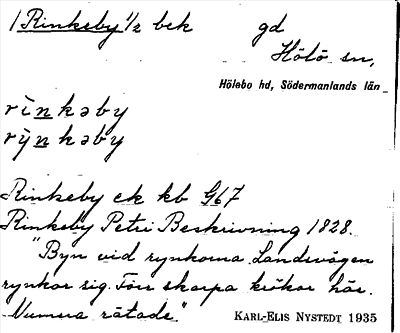 / Rinkeby 1/2 bek gd
Hölö sn,
Hölebo hd, Södermanlands län
rìnkəby
rỳnkəby
Rinkeby ek kb G67
Rinkeby Petri Beskrivning 1828.
"Byn vid rynkorna. Landsvägen
rynkor sig. Förr skarpa krökar här.
Numera rätade."
KARL-ELIS NYSTEDT 1935